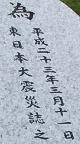 為
平成二十三年三月十一日
東日本大震災誌之